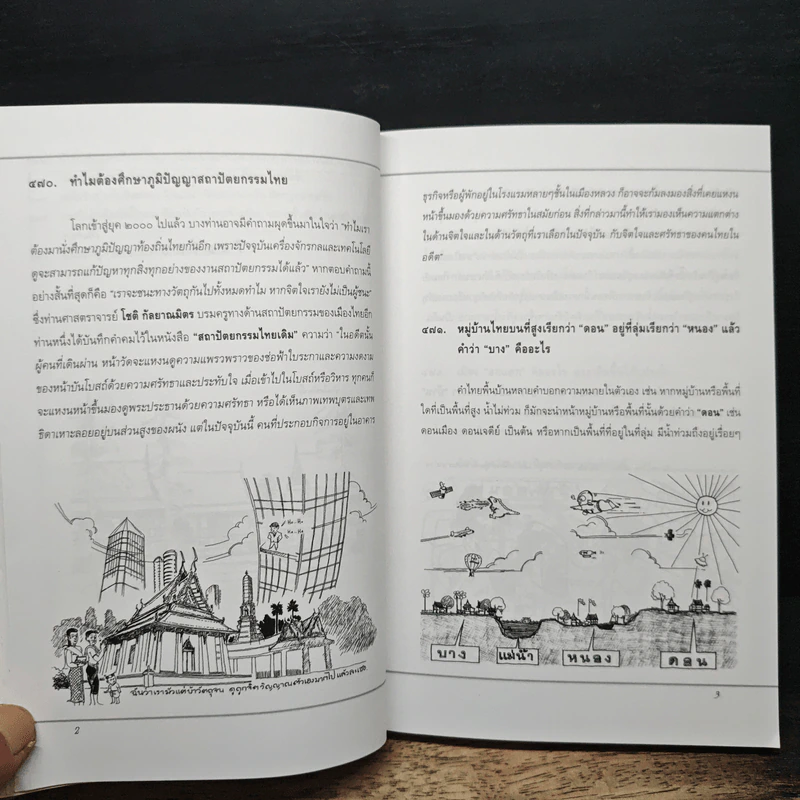 ๔๗๐. ทำไมต้องศึกษาภูมิปัญญาสถาปัตยกรรมไทย
โลกเข้าสู่ยุค ๒๐๐๐ ไปแล้ว บางท่านอาจมีคำถามผุดขึ้นมาในใจว่า "ทำไมเรา
ต้องมานั่งศึกษาภูมิปัญญาท้องถิ่นไทยกันอีก เพราะปัจจุบันเครื่องจักรกลและเทคโนโลยี
ดูจะสามารถแก้ปัญหาทุกสิ่งทุกอย่างของงานสถาปัตยกรรมได้แล้ว" หากตอบคำถามนี้
อย่างสั้นที่สุดก็คือ "เราจะชนะทางวัตถุกันไปทั้งหมดทำไม หากจิตใจเรายังไม่เป็นผู้ชนะ"
ซึ่งท่านศาสตราจารย์ โชติ กัลยาณมิตร บรมครูทางด้านสถาปัตยกรรมของเมืองไทยอีก
ท่านหนึ่งได้บันทึกคำคมไว้ในหนังสือ "สถาปัตยกรรมไทยเดิม" ความว่า "ในอดีตนั้น
ผู้คนที่เดินผ่าน หน้าวัดจะแหงนดูความแพรวพราวของช่อฟ้าใบระกาและความงดงาม
ของหน้าบันโบสถ์ด้วยความศรัทธาและประทับใจ เมื่อเข้าไปในโบสถ์หรือวิหาร ทุกคนก็
จะแหงนหน้าขึ้นมองดูพระประธานด้วยความศรัทธา หรือได้เห็นภาพเทพบุตรและเทพ
ธิดาเหาะลอยอยู่บนส่วนสูงของผนัง แต่ในปัจจุบันนี้ คนที่ประกอบกิจการอยู่ในอาคาร
2
ธุรกิจหรือผู้พักอยู่ในโรงแรมหลายๆชั้นในเมืองหลวง ก็อาจจะก้มลงมองสิ่งที่เคยแหงน
หน้าขึ้นมองด้วยความศรัทธาในสมัยก่อน สิ่งที่กล่าวมานี้ทำให้เรามองเห็นความแตกต่าง
ในด้านจิตใจและในด้านวัตถุที่เราเลือกในปัจจุบัน กับจิตใจและศรัทธาของคนไทยใน
อดีต"
๔๗๑. หมู่บ้านไทยบนที่สูงเรียกว่า "ดอน" อยู่ที่ลุ่มเรียกว่า "หนอง" แล้ว
คำว่า "บาง" คืออะไร
คำไทยพื้นบ้านหลายคำบอกความหมายในตัวเอง เช่น หากหมู่บ้านหรือพื้นที่
ใดที่เป็นพื้นที่สูง น้ำไม่ท่วม ก็มักจะนำหน้าหมู่บ้านหรือพื้นที่นั้นด้วยคำว่า "ดอน" เช่น
ดอนเมือง ดอนเจดีย์ เป็นต้น หรือหากเป็นพื้นที่ที่อยู่ในที่ลุ่ม มีน้ำท่วมถึงอยู่เรื่อยๆ
บาง แม่น้ำ หนอง ดอน
3